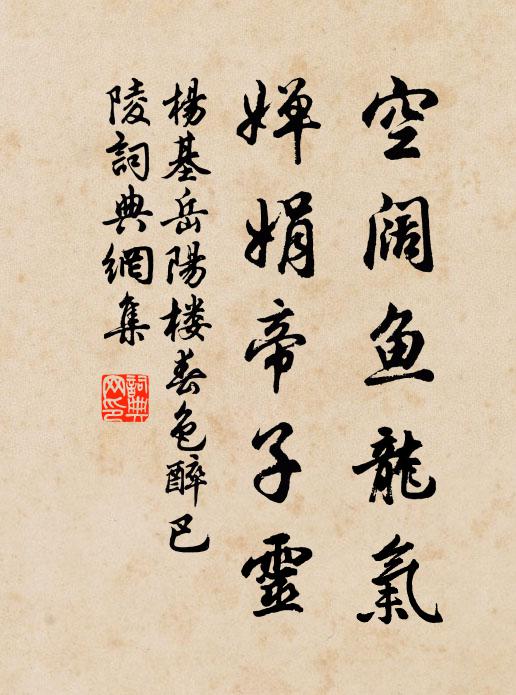 空阔鱼龍氣
嬋娟帝子靈
楊基岳陽楼春色醉巴
陵詞典網集
詞典网印